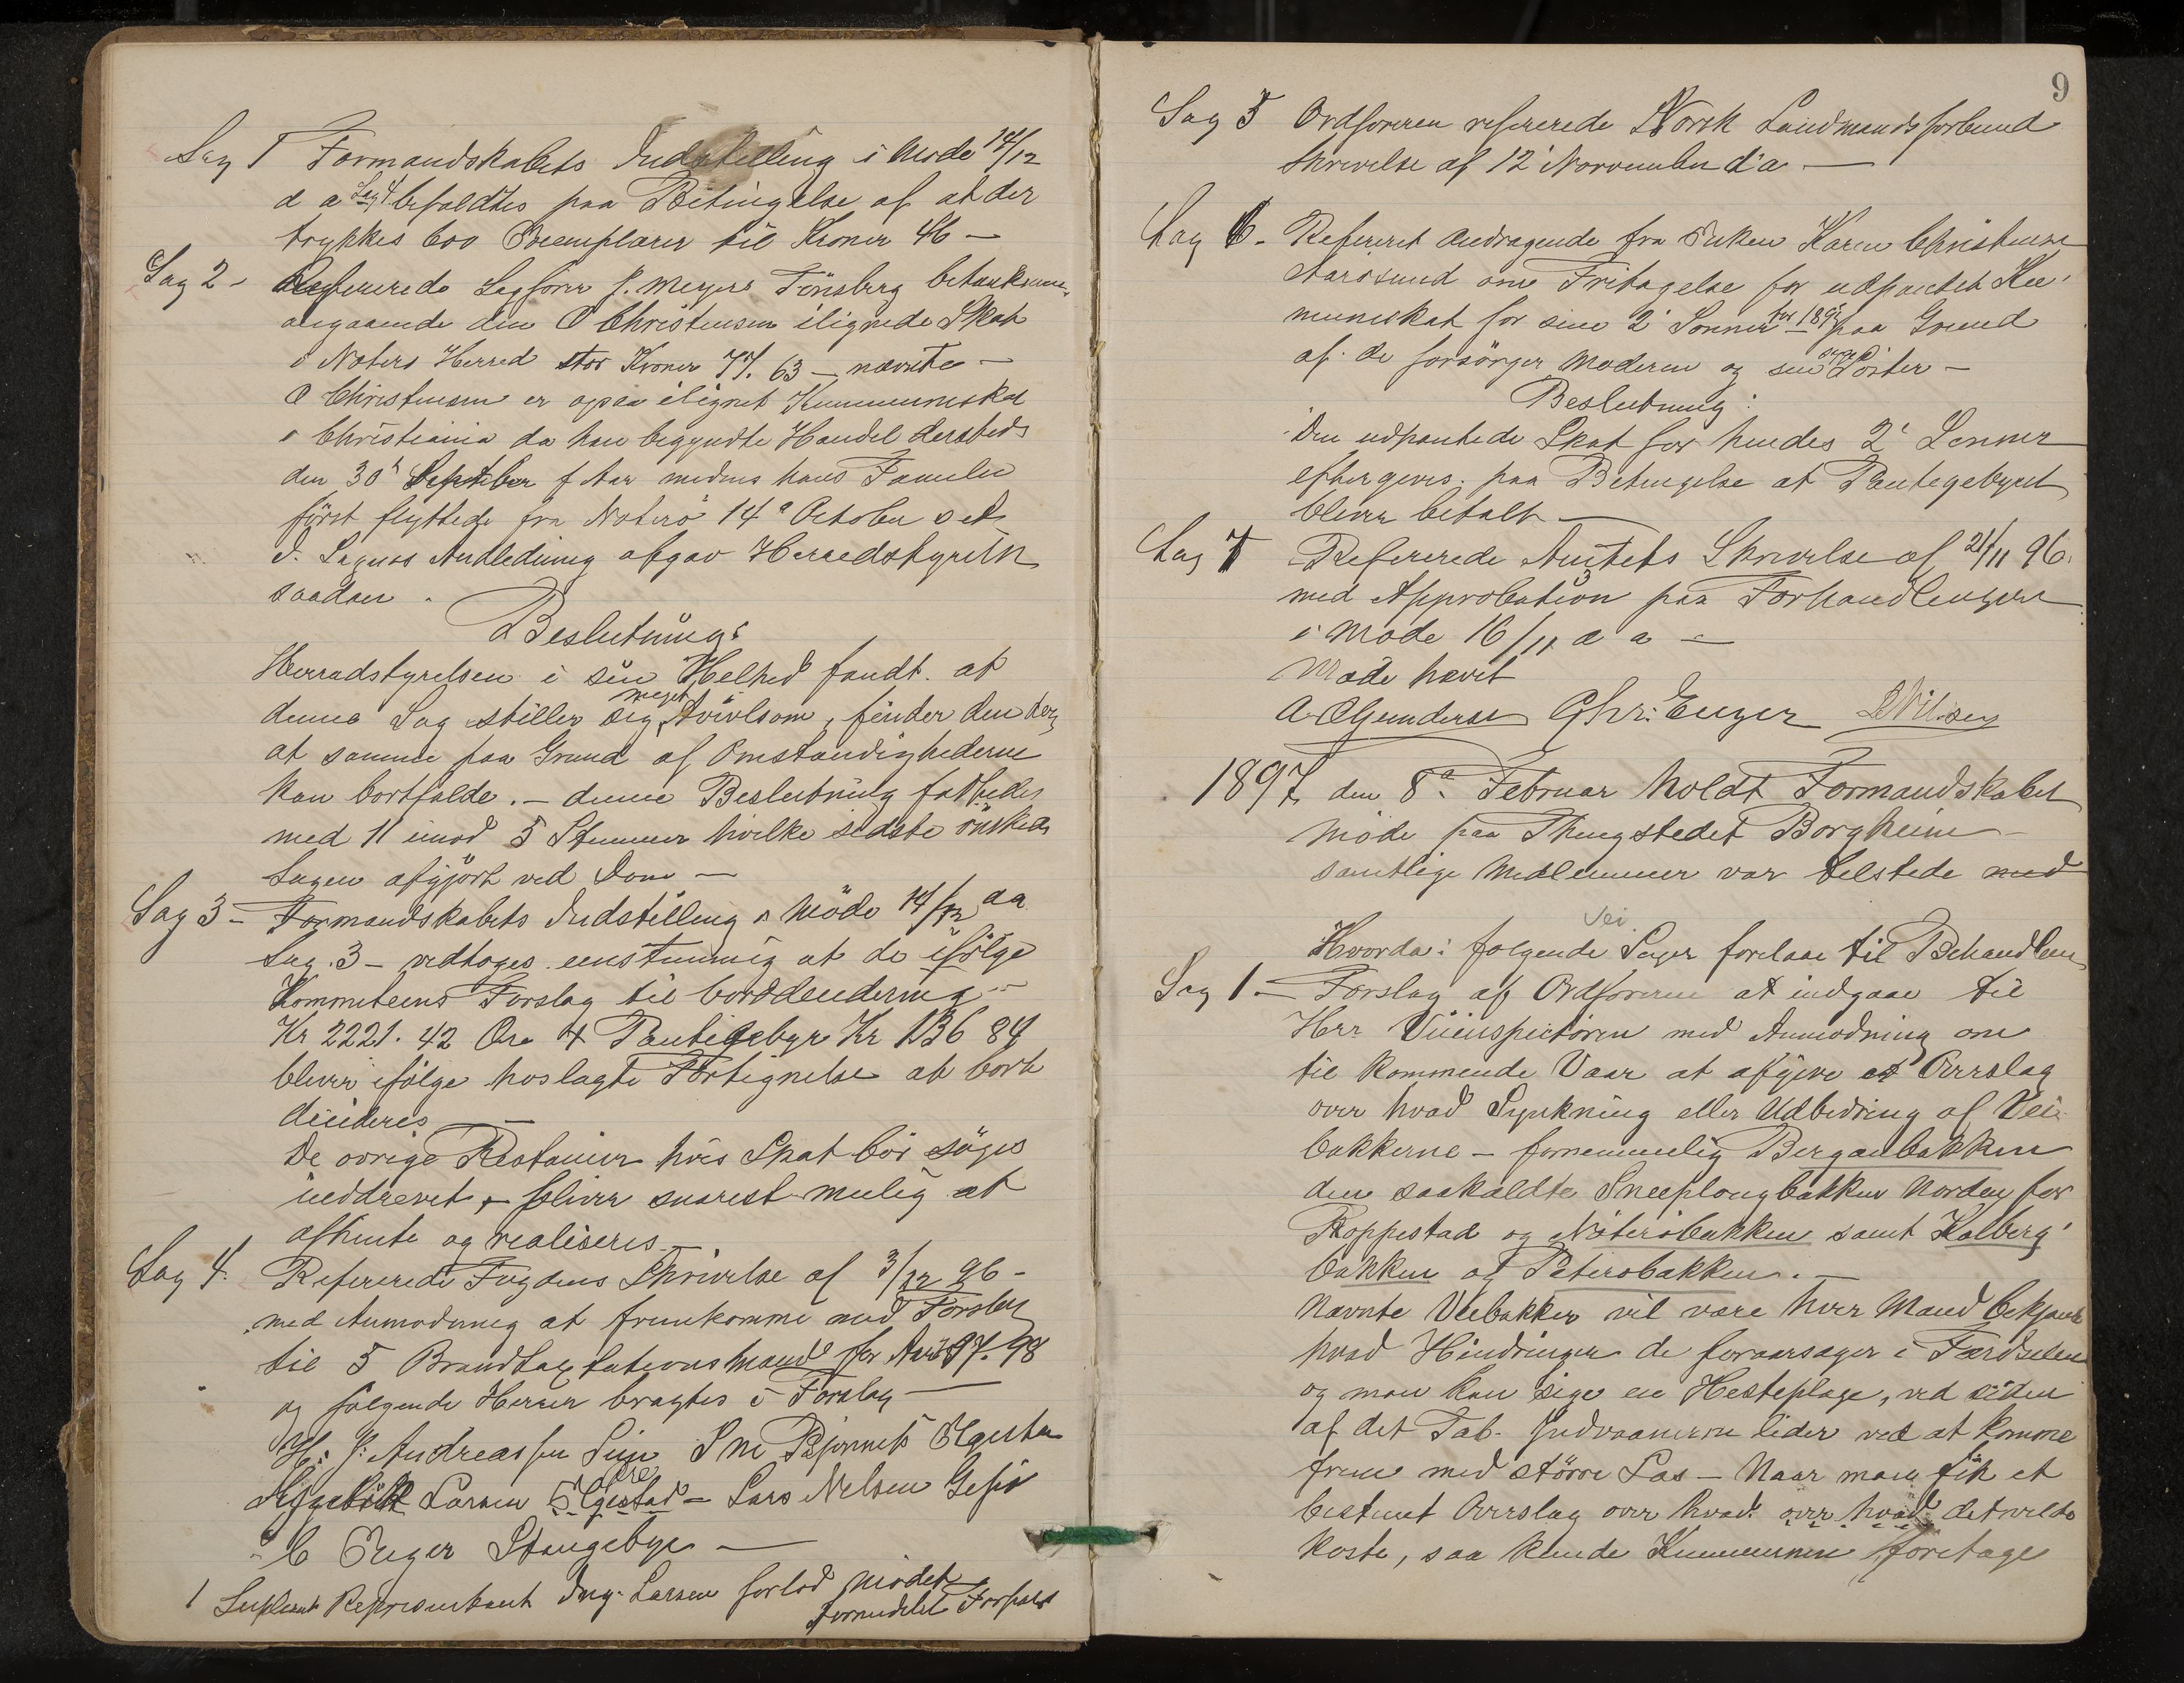 Sag 1 Formandskabets Indstilling i Møde 14/12
d a Sag 4 befaldtes paa Betingelse af at der
trykkes 600 Exemplarer til Kroner 46 —
Sag 2 - Refererede Sagfører J. Meyers Tönsberg
angaaende den O Christensen ilignede Skat
i Nöterö Herred stor Kroner 77. 63 — nævnte —
O Christensen er ogsaa ilignet Kommuneskat
i Christiania da han begyndte Handel dersteds
den 30' September f Aar medens hans Familie
först flyttede fra Nöterö 14de October
I Sagens Anledning afgav Herredstyrelsen
saadan.
Beslutning:
Herredstyrelsen i sin Helhed fandt at
denne Sag stiller sig meget tvivlsom, finder den dog
at samme paa Grund af Omstændighederne
kan bortfalde. — denne Beslutning fattedes
med 11 imod 5 Stemmer hvilke sidste önskede
Sagen afgjört ved Dom —
Sag 3 - Formandskabets Indstilling i Möde 14/12 da
Sag. 3 — vedtoges eenstemmig at de ifölge
Kommiteens Forslag til
Kr 2221. 42 Öre + Pantegebyr Kr 136 84
bliver ifölge hoslagte Fortegnelse at bort
decideres —
De övrige Restancer hvis Skat bör söges
inddrevet, — bliver snarest mulig at
afhente og realiseres —
Sag 4. Refererede Fogdens Skrivelse af 3/12 96 -
med Anmodning at fremkomme med Forslag
til 5 Brandtaxtationsmænd for Aaret 97. 98
og fölgende Herrer bragtes i Forslag —
H. J. Andreassen
Larsen Ölgestad — Lars Nilsen
C Enger Stangebye —
1 Supleant Representant Ing. Larsen forlod Mödet
formedelst Forfald
9
Sag 5 Ordföreren refererede Norsk Landmandsforbund
Skrivelse af 12' November d'a —
Sag 6 - Refereret Andragende fra Enken Karen Christensen
Aarösund om Fritagelse for udpantet Kom-
muneskat for sine 2' Sönner for 1895 paa Grund
af de forsörger Moderen og sin Söster —
Beslutning:
Den udpantede Skat for hendes 2' Sönner
eftergives. paa Betingelse at Pantegebyret
bliver betalt —
Sag 7 Refererede Amtets Skrivelse af 21/11 96.
med Approbation paa Forhandlingerne
i Möde 16/11 d a —
Möde hævet
A. O Gundersen Chr: Enger L Nilsen
1897 den 8de Februar holdt Formandskabet
Möde paa Thingstedet Borgheim —
samtlige Medlemmer var tilstede med
Vei
Hvorda: fölgende Sager forelaae til Behandling
Sag 1. — Forslag af Ordföreren at indgaae til
Herr Veiinspectören med Anmodning om
til kommende Vaar at afgive et Overslag
over hvad Synkning eller Udbedring af Vei-
bakkerne — fornemmelig Berganbakken
den saakaldte Sneeplougbakken Norden for
Roppestad og Nöteröbakken samt Kolberg-
bakken og Peteröbakken. —
Nævnte Veibakker vil være hver Mand bekjendt
hvad Hindringer de foraarsager i Færdselen
og man kan sige en Hesteplage, ved siden
af det Tab. Indvaanerne lider ved at komme
frem med större Læs — Naar man fik et
bestemt Overslag over hvad over hvad det vilde
koste, saa kunde Kommunen foretage